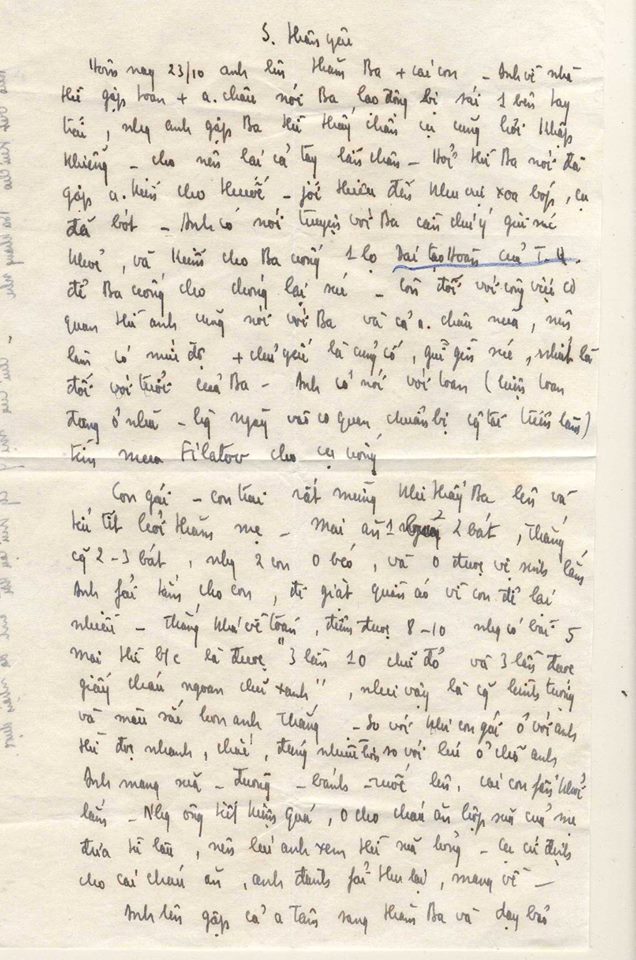 S. thân yêu
Hôm nay 23/10 anh lên thăm Ba + các con – Anh về nhà
thì gặp Loan + a. Châu nói Ba lao động bị sái 1 bên tay
trái, nhg anh gặp Ba thì thấy chân cụ cũng hơi khập
khiễng – cho nên lại cả tay lẫn chân – Hỏi thì Ba nói đã
gặp a. cho thuốc – giới thiệu đến khu xoa bóp, cụ
đã bớt – Anh có nói chuyện với Ba cần chú ý giữ sức
khoẻ, và kiếm cho Ba uống 1 lọ Đại tạo hoàn của T.Q.
để Ba uống cho chóng lại sức – Còn đối với công việc cơ
quan thì anh cũng nói với Ba và cả a. Châu nữa, nên
làm có mức độ + chủ yếu là củng cố, giữ gìn sức, nhất là
đối với tuổi của Ba – Anh có nói với Loan (hiện Loan
đang ở nhà – hg ngày vào cơ quan chuẩn bị cg tác)
tìm mua Filatov cho cụ uống
Con gái – con trai rất mừng khi thấy Ba lên và
tíu tít hỏi thăm mẹ – Mai ăn 1 2 bát, Thắng
cg 2-3 bát, nhg 2 con 0 béo, và 0 được vệ sinh lắm
Anh fải tắm cho con, đi giặt quần áo vì con để lại
nhiều – Thắng khá về toán, điểm được 8-10 nhg có bài 5
Mai thì b/c là được "3 lần 10 chữ đỏ và 3 lần được
giấy cháu ngoan chữ xanh", như vậy là cg
và màu sắc hơn anh Thắng – So với khi con gái ở với anh
thì nhanh, nhiều hơn so với lúc ở chỗ anh
Anh mang sữa – đường – bánh – ruốc lên, các con fấn khởi
lắm – Nhg ông tiết kiệm quá, 0 cho cháu ăn hộp sữa của mẹ
đưa từ lâu, nên lúc anh xem thì sữa hỏng – Cụ cứ định
cho các cháu ăn, anh đành fải thu lại, mang về –
Anh lên gặp cả a Tâm sang thăm Ba và dạy bảo